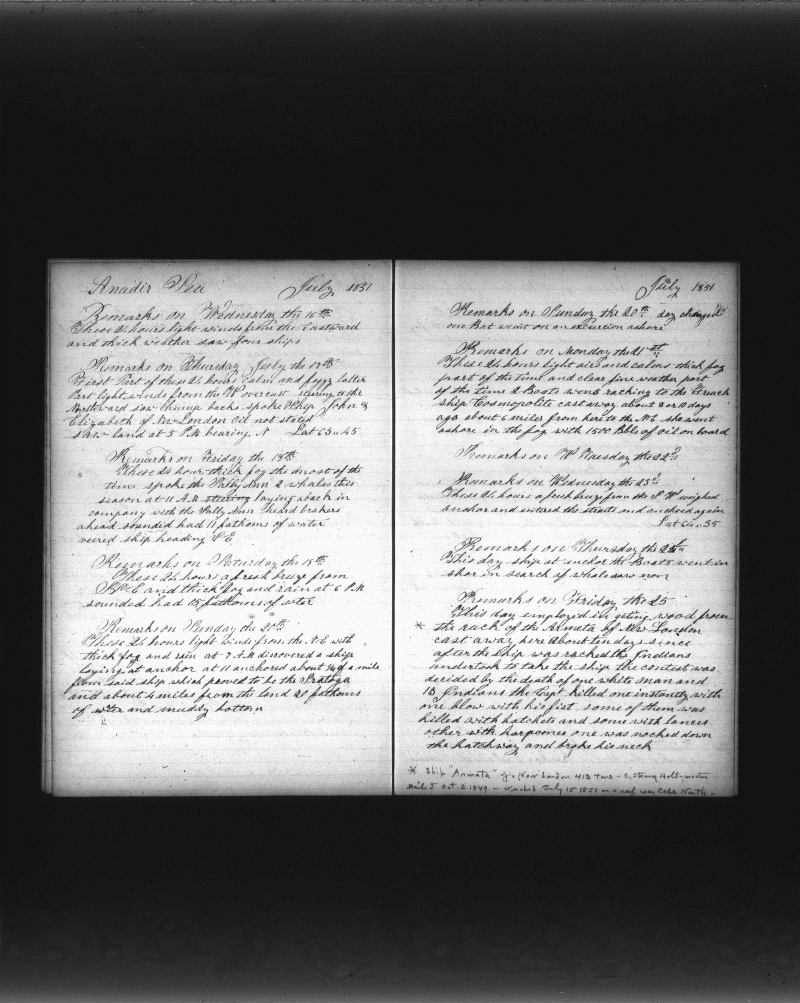 Anadir Sea July 1851
Remarks on Wednesday the 16th
These 24 hours light winds from the Eastward
and thick weather saw four ships
Remarks on Thursday July the 17th
First Part of these 24 hours calm and foggy latter
Part light winds from the W overcast steering to the
Northward saw hump backs spoke Ship John &
Elizabeth of New London Oil not stated
Saw land at 5 P.M. bearing N Lat 63..45
Remarks on Friday the 18th
These 24 hour thick fog the most of the
time spoke the Sally Ann 2 whales this
season at 11 A.M. laying aback in
company with the Sally Ann heard brakers
ahead sounded had 11 fathoms of water
veered ship heading S E
Remarks on Saturday the 19th
These 24 hours a fresh breze from
and thick fog and rain at 6 P.M
sounded had 15 fathoms of water
Remarks on Sunday the 20th
These 24 hours light winds from the N.E with
thick fog and rain at 7 A.M discovered a ship
laying at anchor at 11 anchored about 1/4 of a mile
from said ship which proved to be the Saratoga
and about 4 miles from the land 20 fathoms
of water and muddy bottom
July 1851
Remarks on Sunday the 20th day changed
one Boat went on an excursion ashore
Remarks on Monday the 21st
These 24 hours light airs and calms thick fog
part of the time and clear fine weather part
of the time 2 Boats went raching to the French
ship Cosmopolite cast away about 8 or 10 days
ago about 6 miles from here to the N.E she went
ashore in the fog with 1500 Bbls of oil on board
Remarks on Tuesday the 22d
Remarks on Wednesday the 23d
These 24 hours a fresh breze from the S W weighed
anchor and entered the straits and anchored again
Lat 64..35
Remarks on Thursday the 24th
This day ship at anchor the Boats went in
shor in search of whales saw non
Remarks on Friday the 25
This day employed in geting wood from
* the rack of the Armeta of New London
cast away here about ten days since
after the ship was racked the Indians
undertook to take the ship the contest was
decided by the death of one white man and
18 Indians the Capt killed one instantly with
one blow with his fist some of them was
killed with hatchets and some with lances
other with harpoones one was nocked down
the hatchway and broke his neck
* Ship "Armata" of New London 413 tons - C, Strong Holt, master
Sailed Oct 2 1849 - Wrecked July 15 1851 on a reef near Cape North.